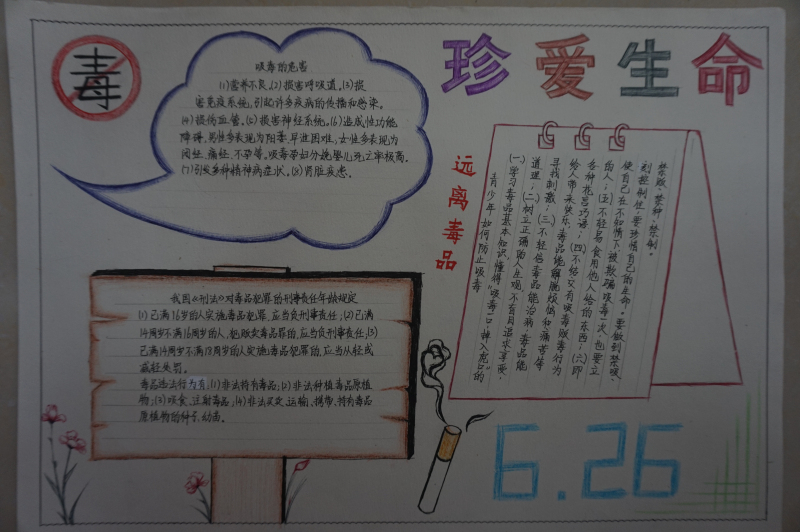 毒
珍爱生命
吸毒的危害
(1)营养不良(2)损害呼吸道。(3)损
害免疫系统,引起许多疾病的传播和感染。
(4)损伤血管。(5)损害神经系统。(6)造成性功能
障碍,男性多表现为阳萎、早泄困难,女性多表现为
闭经、痛经、不孕等。吸毒孕妇分娩婴儿死亡率极高。
(7)引发多种精神病症状。(8)肾脏疾患。
远离毒品
青少年如何防止吸毒
(一)学习毒品基本知识,懂得“吸毒一口,掉入虎口”的
道理;(二)树立正确的人生观,不盲目追求享受,
寻找刺激;(三)不轻信毒品能治病,毒品能
解脱烦恼和痛苦,毒品能
给人带来快乐等
各种花言巧语;(四)不结交有吸毒贩毒行为
的人;(五)不轻易食用他人给的东西;(六)即
使自己在不知情下,被欺骗吸毒一次,也要立
刻控制住,要珍惜自己的生命。要做到禁吸、
禁贩、禁种、禁制。
我国《刑法》对毒品犯罪的刑事责任年龄规定
(1)已满16岁的人实施毒品犯罪,应当负刑事责任;(2)已满
14周岁不满16周岁的人,犯贩卖毒品罪的,应当负刑事责任;(3)
已满14周岁不满18周岁的人实施毒品犯罪的,应当从轻或
减轻处罚。
毒品违法行为有:(1)非法持有毒品;(2)非法种植毒品原植
物;(3)吸食、注射毒品;(4)非法买卖、运输、携带、持有毒品
原植物的种子、幼苗。
6.26